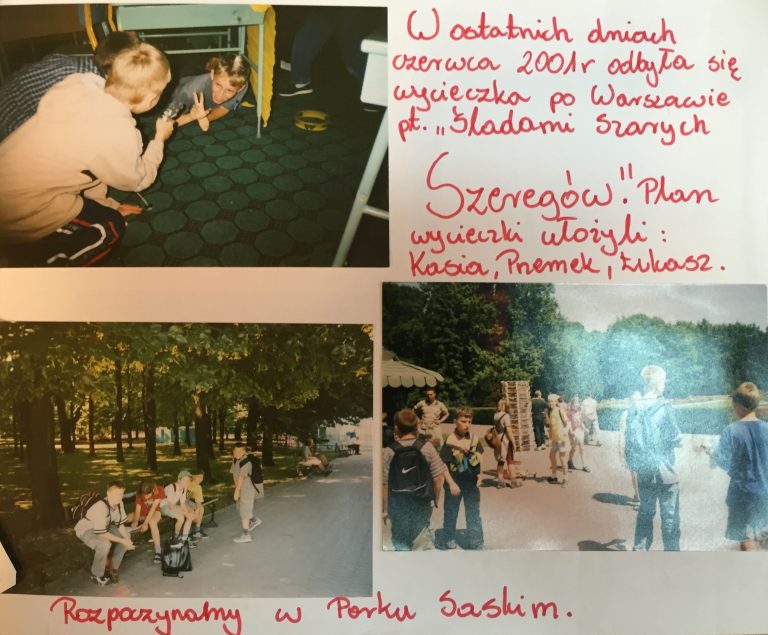 W ostatnich dniach
czerwca 2001r odbyła się
wycieczka po Warszawie
pt. „Śladami Szarych
Szeregów". Plan
wycieczki ułożyli :
Kasia, Przemek, Łukasz.
Rozpoczynalmy w Parku Saskim.